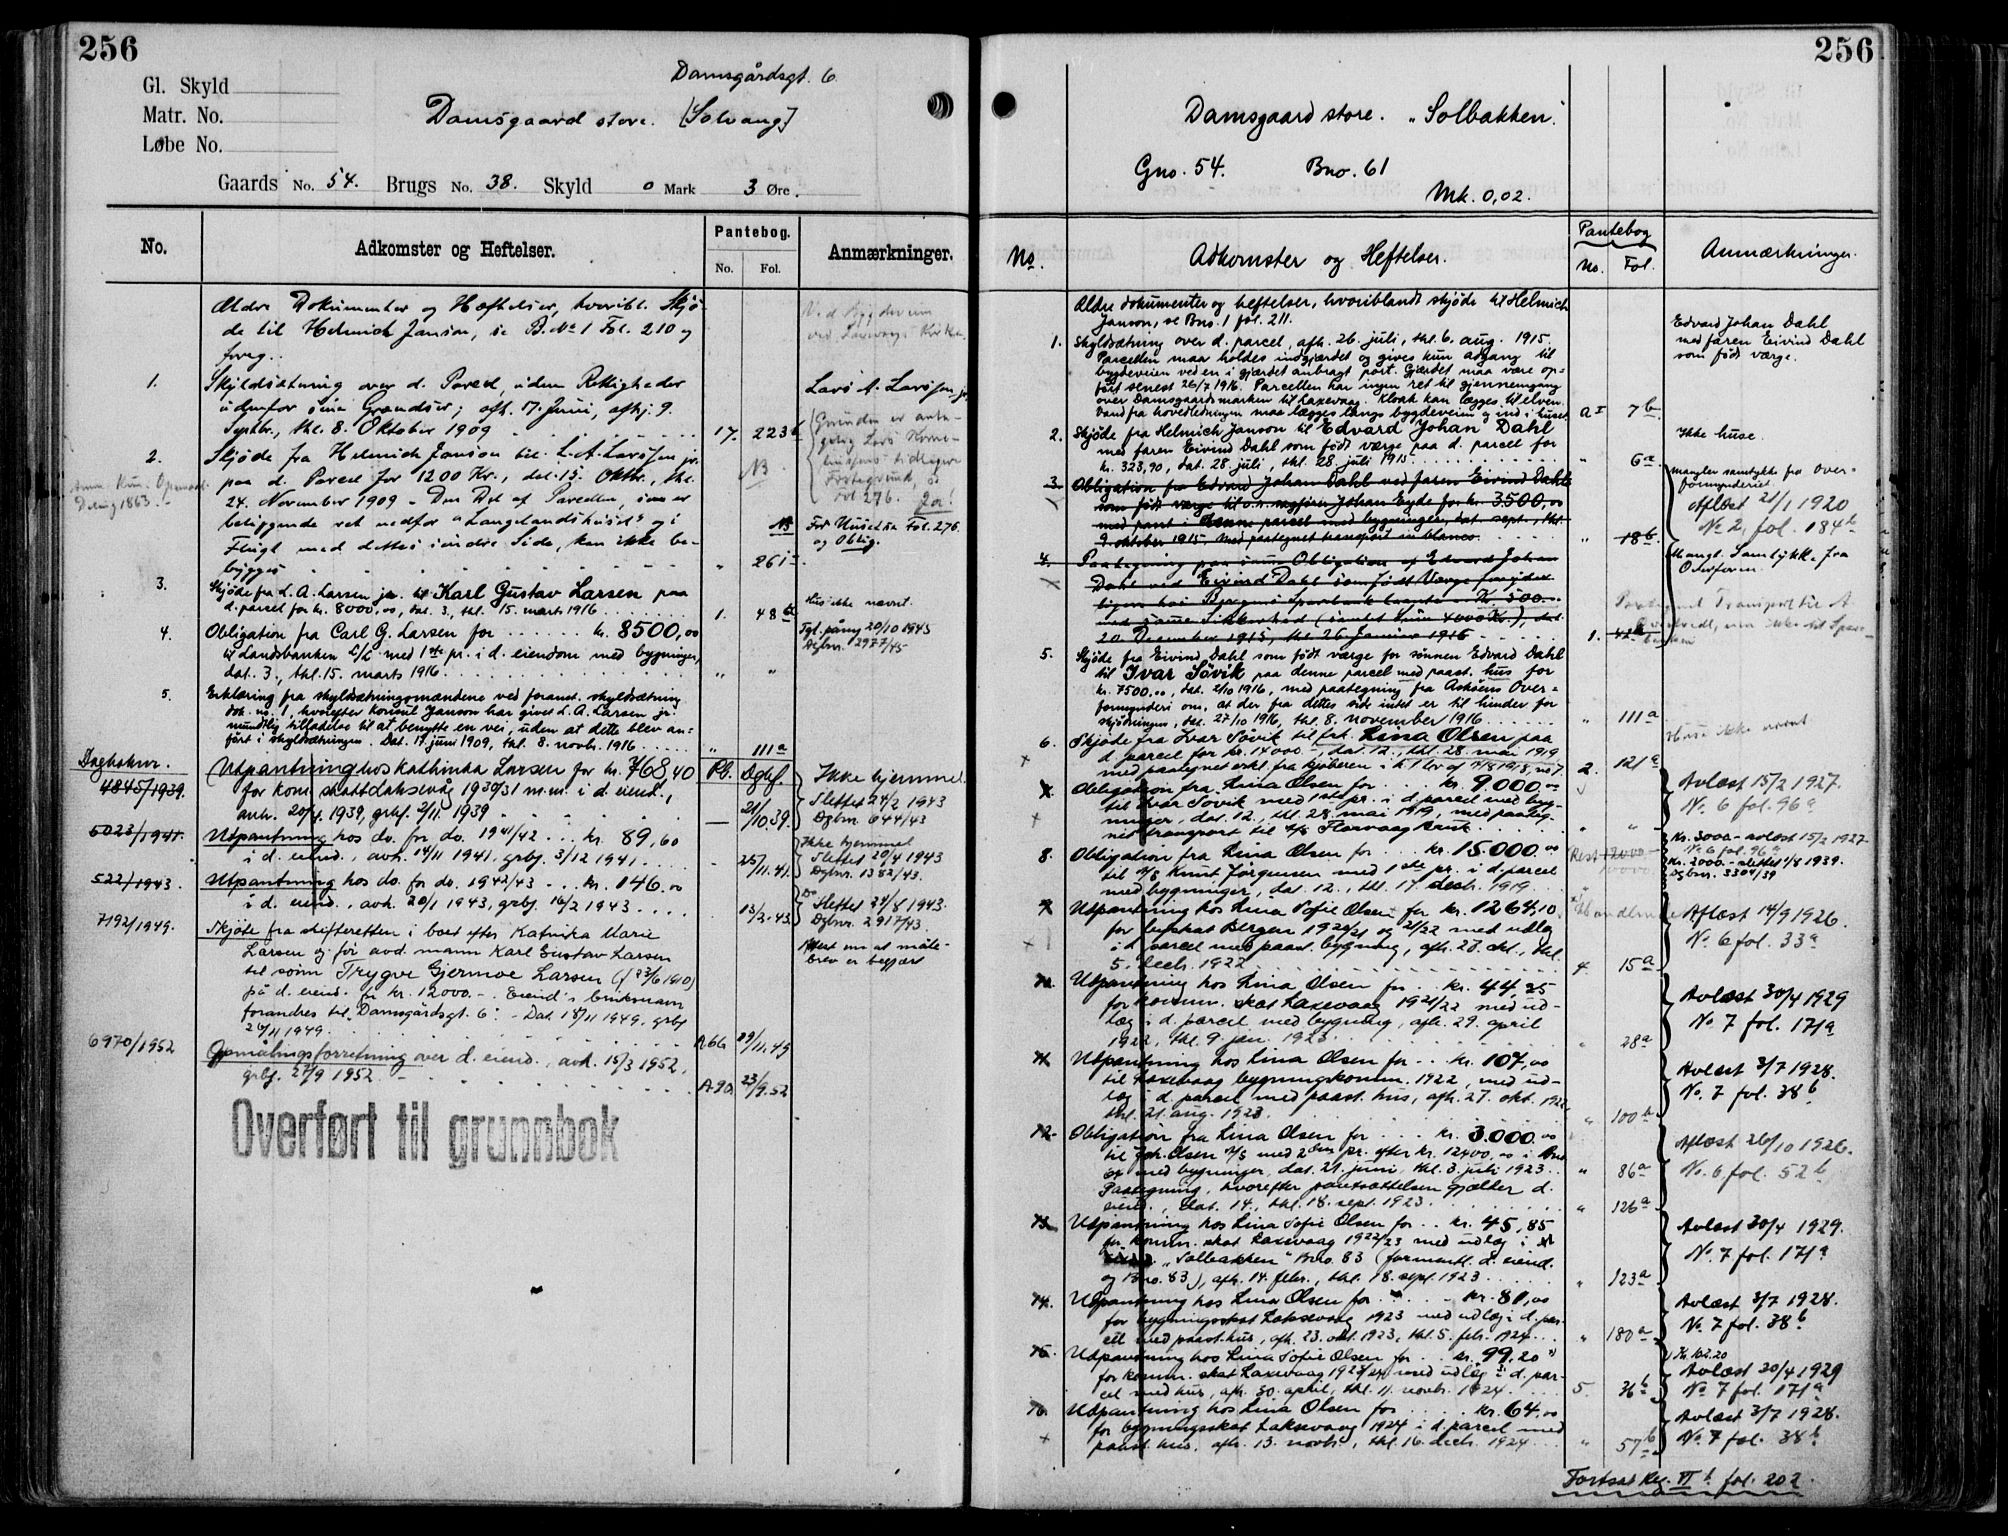 256
Gl. Skyld
Matr. No.
Løbe No.
Damsgårdsgt. 6
Damsgaard store. (Solvang)
Gaards No. 54. Brugs No. 38. Skyld 0 Mark 3 Øre.
No.
Adkomster og Heftelser.
Pantebog.
No. Fol.
Anmærkninger.
Ældre Dokumenter og Hæftelser, hvoribl. Skjø-
de til Helmich Janson, se B.No 1 Fol. 210 og
foreg..
1. Skyldsætning over d. Parcel, uden Rettigheder
udenfor sine Grændser; afh. 17. Juni, afhj. 9.
Septbr., thl. 8. Oktober 1909 17. 223b
Lars A. Larssen jr.
2. Skjøde fra Helmich Janson til L. A. Larssen jr.
paa d. Parcel for 1200 Kr., dat. 15. Oktbr., thl.
24. November 1909 - Den Del af Parcellen, som er
beliggende ret nedfor "Langelandshuset" og i
Flugt med dettes indre Side, kan ikke be-
bygges 261
NB
For Huset se Fol. 276.
og Oblig.
3. Skjøde fra L. A. Larsen jr. til Karl Gustav Larsen paa
d. parcel for kr. 8000,00, dat. 3., thl. 15. marts 1916 1. 48a
Hus ikke nævnt.
4. Obligation fra Carl G. Larsen for kr. 8500,00
til Landsbanken A/S med 1ste pr. i d. eiendom med bygninger,
dat. 3., thl. 15. marts 1916 " "
Tgl. påny 20/10 1945
Dgbnr. 2977/45
5. Erklæring fra skyldsætningsmændene ved foranst. skyldsætning
dok. no. 1, hvorefter Konsul Janson har givet L. A. Larsen jr.
mundtlig tilladelse til at benytte en vei, uden at dette blev an-
ført i skyldsætningen. Dat. 17. juni 1909, thl. 8. novbr. 1916 " 111a
Dagboknr.
4845/1939.
Utpantning hos Kathinka Larsen for kr. 768,40
for kom. skatt Laksevåg 1930/31 m.m. i d. eiend.,
Pb. Dgbf.
21/10.39.
Ikke hjemmel.
Slettet 24/2 1943
Dgbnr. 644/43
5023/1941.
Utpantning hos do. for do. 1941/42 kr. 89,60
i d. eiend., avh. 14/11 1941, grbf. 3/12 1941.
25/11.41.
Ikke hjemmel
Slettet 29/4 1943
Dgbnr. 1382/43.
522/1943.
Utpantning hos do. for do. 1942/43 kr. 146.00
i d. eiend., avh. 20/1 1943, grbf. 16/2 1943.
13/2.43.
Do
Slettet 24/8 1943.
Dgbnr. 2917/43.
7192/1949.
Skjøte fra skifteretten i boet efter Katrika Marie
Larsen og før avd. mann Karl Gustav Larsen
til sønn Trygve Gjermoe Larsen (f 23/6 1910)
på d. eiend. for kr. 12000.-. Eiend's bruksnavn
forandres til "Damsgårdsgt. 6". - Dat. 18/11 1949, grbf
26/11 1949. A 66 29/11.49
Attest om at måle-
brev er begjært
6970/1952
Opmålingsforretning over d. eiend., avh. 15/3 1952,
grbf. 27/9 1952. A 90. 23/9.52
Overført til grunnbok
256
Damsgaard store. "Solbakken".
Gno. 54. Bno. 61
Mk. 0,02.
No.
Adkomster og Heftelser.
Pantebog
No. Fol.
Anmærkninger.
Ældre dokumenter og heftelser, hvoriblandt skjøde til Helmich
Janson, se Bno. 1 fol. 211.
1. Skyldsætning over d. parcel, afh. 26. juli, thl. 6. aug. 1915.
Parcellen maa holdes indgjærdet og gives kun adgang til
bygdeveien ved en i gjærdet anbragt port. Gjærdet maa være op-
ført senest 26/7 1916. Parcellen har ingen ret til gjennemgang
over Damsgaardsmarken til Laxevaag. Kloak kan lægges til elven.
Vand fra hovedledningen maa lægges langs bygdeveien og ind i huset. A I 7b
Edvard Johan Dahl
med faren Eivind Dahl
som født værge.
2. Skjøde fra Helmich Janson til Edvard Johan Dahl
med faren Eivind Dahl som født værge paa d. parcel for
kr. 323,90, dat. 28. juli, thl. 28. juli 1915 " 6a
Ikke huse.
3. Obligation fra Edvard Johan Dahl ved faren Eivind Dahl
som født værge til o.r. sagfører Johan Eyde for kr. 3500,00
med pant i denne parcel med bygninger, dat. sept., thl.
9. oktober 1915, med paategnet transport in blanco " 18b
mangler samtykke fra Over-
formynderiet.
Aflæst 21/1 1920
No 2, fol. 184b
4. Paategning paa samme Obligation af Edvard Johan
Dahl ved Eivind Dahl som født Værge
Kr. 500.-
med samme Sikkerhed (samlet Sum 4000 Kr.), dat.
20. December 1915, thl. 26. Januar 1916 1. 42a
Mangl. Samtykke fra
5. Skjøde fra Eivind Dahl som født værge for sønnen Edvard Dahl
til Ivar Søvik paa denne parcel med paast. hus for
kr. 7500.00, dat. 2/10 1916, med paategning fra Askøens Over-
formynderi om, at der fra dettes side intet er til hinder for
skjødningen, dat. 27/10 1916, thl. 8. november 1916 " 111a
Huse ikke nævnt
6. Skjøde fra Ivar Søvik til frk. Lina Olsen paa
d. parcel for kr. 14000.-, dat. 12., thl. 28. mai 1919
2. 121a
Obligation fra Lina Olsen for kr. 9.000.00
til Ivar Søvik med 1ste pr. i d. parcel med byg-
ninger, dat. 12., thl. 28. mai 1919, med paateg-
net transport til A/S Florvaag bruk " "
Avlæst 15/2 1927.
No. 6 fol. 96a
8. Obligation fra Lina Olsen for kr. 15.000.00
til A/S Knut Jørgensen med 1ste pr. i d. parcel
med bygninger, dat. 12., thl. 17. dech. 1919
Rest 12000.-
Kr. 3000.- avlæst 15/2 1927
No. 6 fol. 96a
Kr. 2000.- slettet 1/8 1939.
Dgbnr. 3304/39
Utpantning hos Lina Sofie Olsen for kr. 1264,10
for byskat Bergen 1920/21 og 21/22 med udlæg
i d. parcel med paast. bygning, afh. 27. okt., thl.
5. dech. 1922 4. 15a
Aflæst 14/9 1926.
No. 6 fol. 33a
10. Utpantning hos Lina Olsen for kr. 44,25
for kommun. skat Laxevaag 1921/22 med ud-
læg i d. parcel med bygning, afh. 29. april
1922, thl. 9. jan. 1923 " 28a
Avlæst 30/4 1929
No. 7 fol. 171a
11. Utpantning hos Lina Olsen for kr. 107,00
til Laxevaag bygningskomm. 1922, med ud-
læg i d. parcel med paast. hus, afh. 27. okt. 1922
thl. 21. aug. 1923 " 100b
Avlæst 3/7 1928.
No. 7 fol. 38b
12. Obligation fra Lina Olsen for kr. 3.000.00
til Joh. Olsen A/S med 2den pr. efter kr. 12400.00 i Bno
med bygninger, dat. 21. juni, thl. 3. juli 1923 " 86a
Paategning, hvorefter pantsættelsen gjælder d.
eiend., dat. 14., thl. 18. sept. 1923 " 126a
Aflæst 26/10 1926.
No. 6 fol. 52b
13. Utpantning hos Lina Sofie Olsen for kr. 45,85
for komm. skat Laxevaag 1922/23 med udlæg i
"Solbakken" Bno. 83 (formentl. d. eiend.
og Bno. 83), afh. 14. febr., thl. 18. sept. 1923 " 123a
Avlæst 30/4 1929.
No. 7 fol. 171a
14. Utpantning hos Lina Olsen for kr. 81,00
for bygningsskat Laksevaag 1923 med udlæg i d. par-
cel med paast. hus, afh. 23. okt. 1923, thl. 5. febr. 1924 " 180a
Avlæst 3/7 1928.
No. 7 fol. 38b
15. Utpantning hos Lina Sofie Olsen for kr. 99,20
for komm. skat Laxevaag 1923/24 med udlæg i d. par-
cel med hus, afh. 30. april, thl. 11. novbr. 1924 5. 36b
Avlæst 30/4 1929
No. 7 fol. 171a
16. Utpantning hos Lina Olsen for kr. 64.00
for bygningsskat Laksevaag 1924 i d. parcel med
paast. hus, afh. 13. novbr., thl. 16. dech. 1924 " 57b
Avlæst 3/7 1928.
No. 7 fol. 38b
Fortsat Reg. VI b fol. 202.